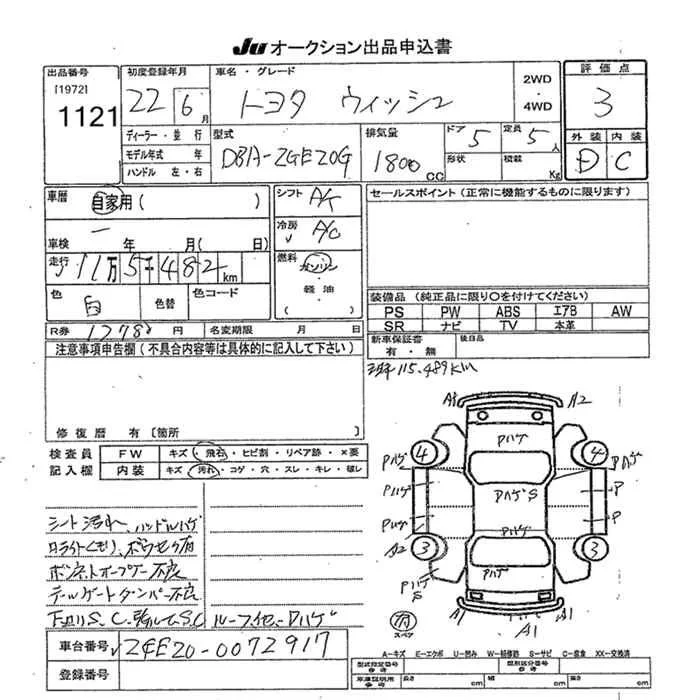 JU オークション出品申込書
出品番号
[1972]
1121
初度登録年月
22 6月
車名・グレード
トヨタ ウィッシュ
2WD
・
4WD
評価点
3
ディーラー・並行
モデル年式 年
ハンドル 左・右
型式
DBA-ZGE20G
排気量
1800 CC
ドア 5
定員 5人
形状
積載 Kg
外装 内装
D C
車歴
自家用( )
シフト A/T
セールスポイント (正常に機能するものに限ります)
車検 年 月( 日)
冷房 A/C
走行 11万5千482km
燃料
ガソリン
・
軽油
色 白
色替
色コード
装備品 (純正品に限り○を付けてください)
PS PW ABS エアB AW
SR ナビ TV 本革
R券 円
名変期限 月 日
新車保証書
有・無
後日品
注意事項申告欄 (不具合内容等は具体的に記入して下さい)
115.489km
修復歴 有〔箇所
検査員
記入欄
FW キズ・飛石・ヒビ割・リペア跡・×要
内装 キズ・汚れ・コゲ・穴・スレ・キレ・破レ
A1 A2
Pハゲ
4 4
Pハゲ Pハゲ
Pハゲ PハゲS P
Pハゲ P
Pハゲ
A2 3 3
PハゲS Pハゲ
有
スペア
A1 A1
シート汚れ、ハンドルハゲ
ボンネットオープナー不良
テールゲートダンパー不良
下回りS.C.
車台番号 ZGE20-0072917
登録番号
A-キズ E-エクボ U-凹み W-補修跡 S-サビ C-腐食 XX-交換済
型式指定番号
類別区分番号
車庫証明用参考
長さ cm 幅 cm 高さ cm